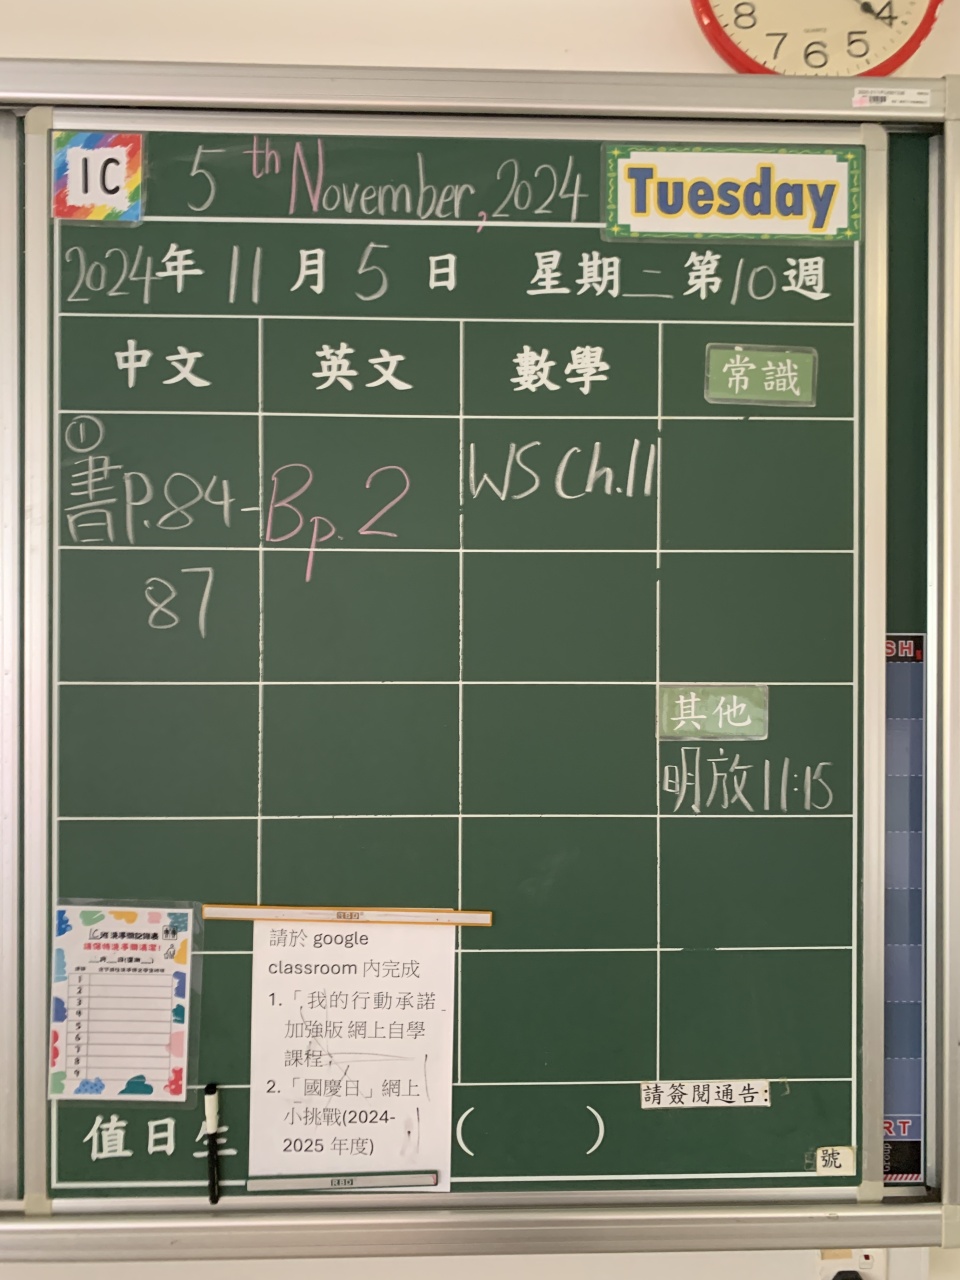 8 7 6 5 4
1C 5th November, 2024 Tuesday
2024年11月5日 星期二第10週
中文 英文 數學 常識
①
書P.84- Bp.2 WS Ch.11
87
其他
明放11:15
請保持洗手間清潔!
1
2
3
4
5
6
7
8
9
請於 google
classroom 內完成
1.「我的行動承諾
加強版 網上自學
課程」
2.「國慶日」網上
小挑戰(2024-
2025 年度)
值日生 ( )
請簽閱通告:
號
SH
RT